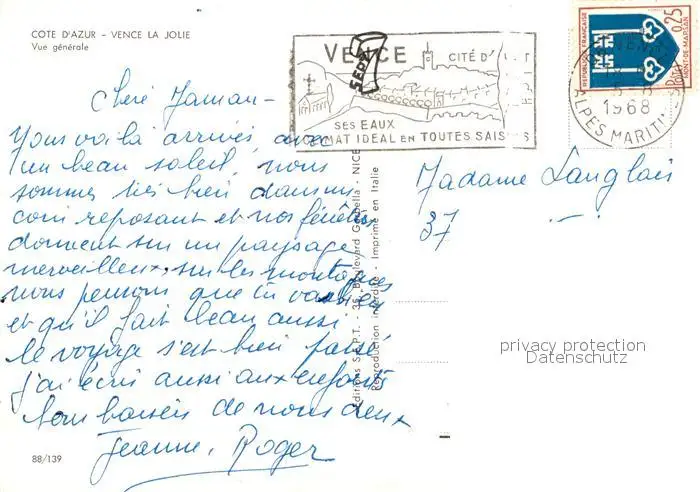 COTE D'AZUR - VENCE LA JOLIE
Vue générale
Chère Maman -
Vous voilà arrivés avec
un beau soleil, nous
sommes très bien dans un
coin reposant et nos fenêtres
donnent sur un paysage
merveilleux, sur les montagnes
nous pensons que tu vas bien
et qu'il fait beau aussi
le voyage s'est bien passé
j'ai écris aussi aux enfants
bons baisers de nous deux
Jeanne, Roger
88/139
VENCE CITÉ D'
SES EAUX
MAT IDEAL EN TOUTES SAIS S
REPUBLIQUE FRANÇAISE
0,25
MONT-DE-MARSAN
1968
ALPES MARITIMES
Madame Langlais
37 -
Editions S.E.P.T. - 35, Boulevard - NICE
Reproduction interdite - Imprimé en Italie
privacy protection
Datenschutz